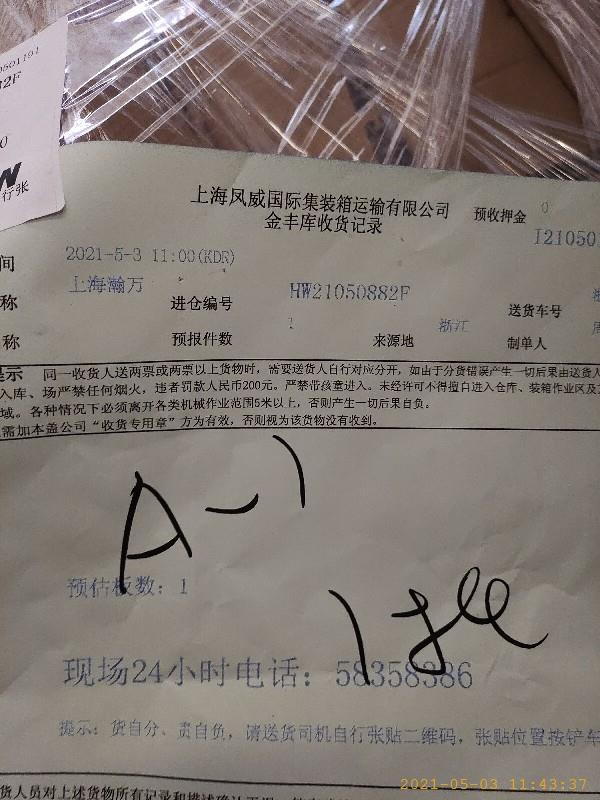 0501191
82F
0
W
行张
上海凤威国际集装箱运输有限公司
金丰库收货记录
预收押金 0
I21050
间 2021-5-3 11:00(KDR)
称 上海瀚万 进仓编号 HW21050882F 送货车号
称 预报件数 1 来源地 浙江 制单人
提示 同一收货人送两票或两票以上货物时，需要送货人自行对应分开，如由于分货错误产生一切后果由送货人
入库、场严禁任何烟火，违者罚款人民币200元。严禁带孩童进入。未经许可不得擅自进入仓库、装箱作业区及
域。各种情况下必须离开各类机械作业范围5米以上，否则产生一切后果自负。
需加本盖公司“收货专用章”方为有效，否则视为该货物没有收到。
A-1
预估板数：1
1托
现场24小时电话：58358386
提示：货自分、责自负，请送货司机自行张贴二维码，张贴位置按铲车
货人员对上述货物所有记录和描述确认无误
2021-05-03 11:43:37